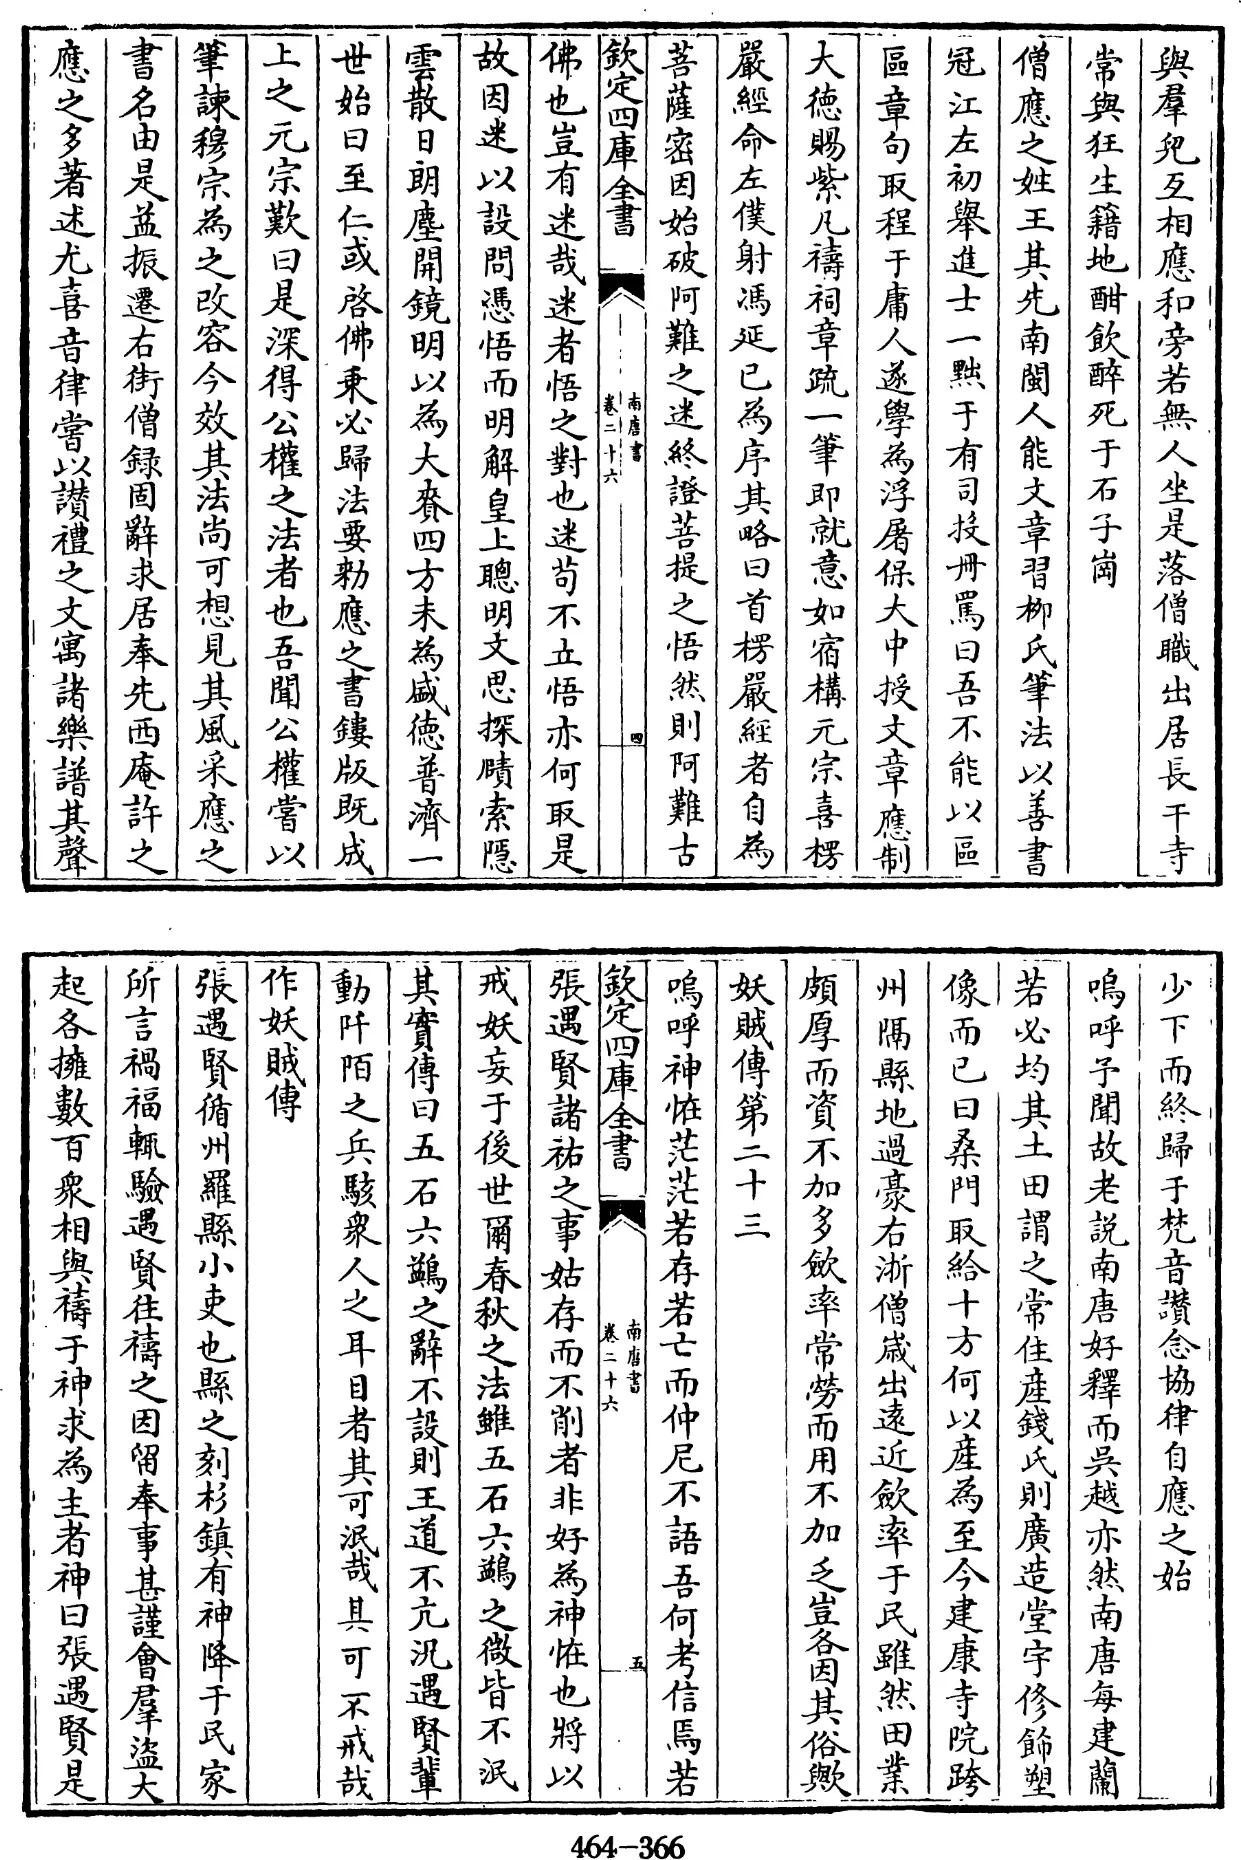 與羣兒互相應和旁若無人坐是落僧職出居長干寺
常與狂生籍地酣飲醉死于石子崗
僧應之姓王其先南閩人能文章習柳氏筆法以善書
冠江左初舉進士一黜于有司投冊罵曰吾不能以區
區章句取程于庸人遂學為浮屠保大中授文章應制
大德賜紫凡禱祠章疏一筆即就意如宿構元宗喜楞
嚴經命左僕射馮延已為序其略曰首楞嚴經者自為
菩薩密因始破阿難之迷終證菩提之悟然則阿難古
欽定四庫全書
南唐書
卷二十六
四
佛也豈有迷哉迷者悟之對也迷苟不立悟亦何取是
故因迷以設問憑悟而明解皇上聰明文思探賾索隱
雲散日朗塵開鏡明以為大賚四方未為盛德普濟一
世始曰至仁或啓佛乗必歸法要勑應之書鏤版既成
上之元宗歎曰是深得公權之法者也吾聞公權嘗以
筆諫穆宗為之改容今效其法尚可想見其風采應之
書名由是益振遷右街僧録固辭求居奉先西庵許之
應之多著述尤喜音律嘗以讃禮之文寓諸樂譜其聲
少下而終歸于梵音讃念協律自應之始
嗚呼予聞故老説南唐好釋而吳越亦然南唐每建蘭
若必均其土田謂之常住産錢氏則廣造堂宇修飾塑
像而已曰桑門取給十方何以産為至今建康寺院跨
州隔縣地過豪右浙僧嵗出遠近歛率于民雖然田業
頗厚而資不加多歛率常勞而用不加乏豈各因其俗歟
妖賊傳第二十三
嗚呼神恠茫茫若存若亡而仲尼不語吾何考信焉若
欽定四庫全書
南唐書
卷二十六
五
張遇賢諸祐之事姑存而不削者非好為神恠也將以
戒妖妄于後世爾春秋之法雖五石六鷁之微皆不泯
其實傳曰五石六鷁之辭不設則王道不亢況遇賢輩
動阡陌之兵駭衆人之耳目者其可泯哉其可不戒哉
作妖賊傳
張遇賢循州羅縣小吏也縣之刻杉鎮有神降于民家
所言禍福輒驗遇賢往禱之因留奉事甚謹會羣盜大
起各擁數百衆相與禱于神求為主者神曰張遇賢是
464-366